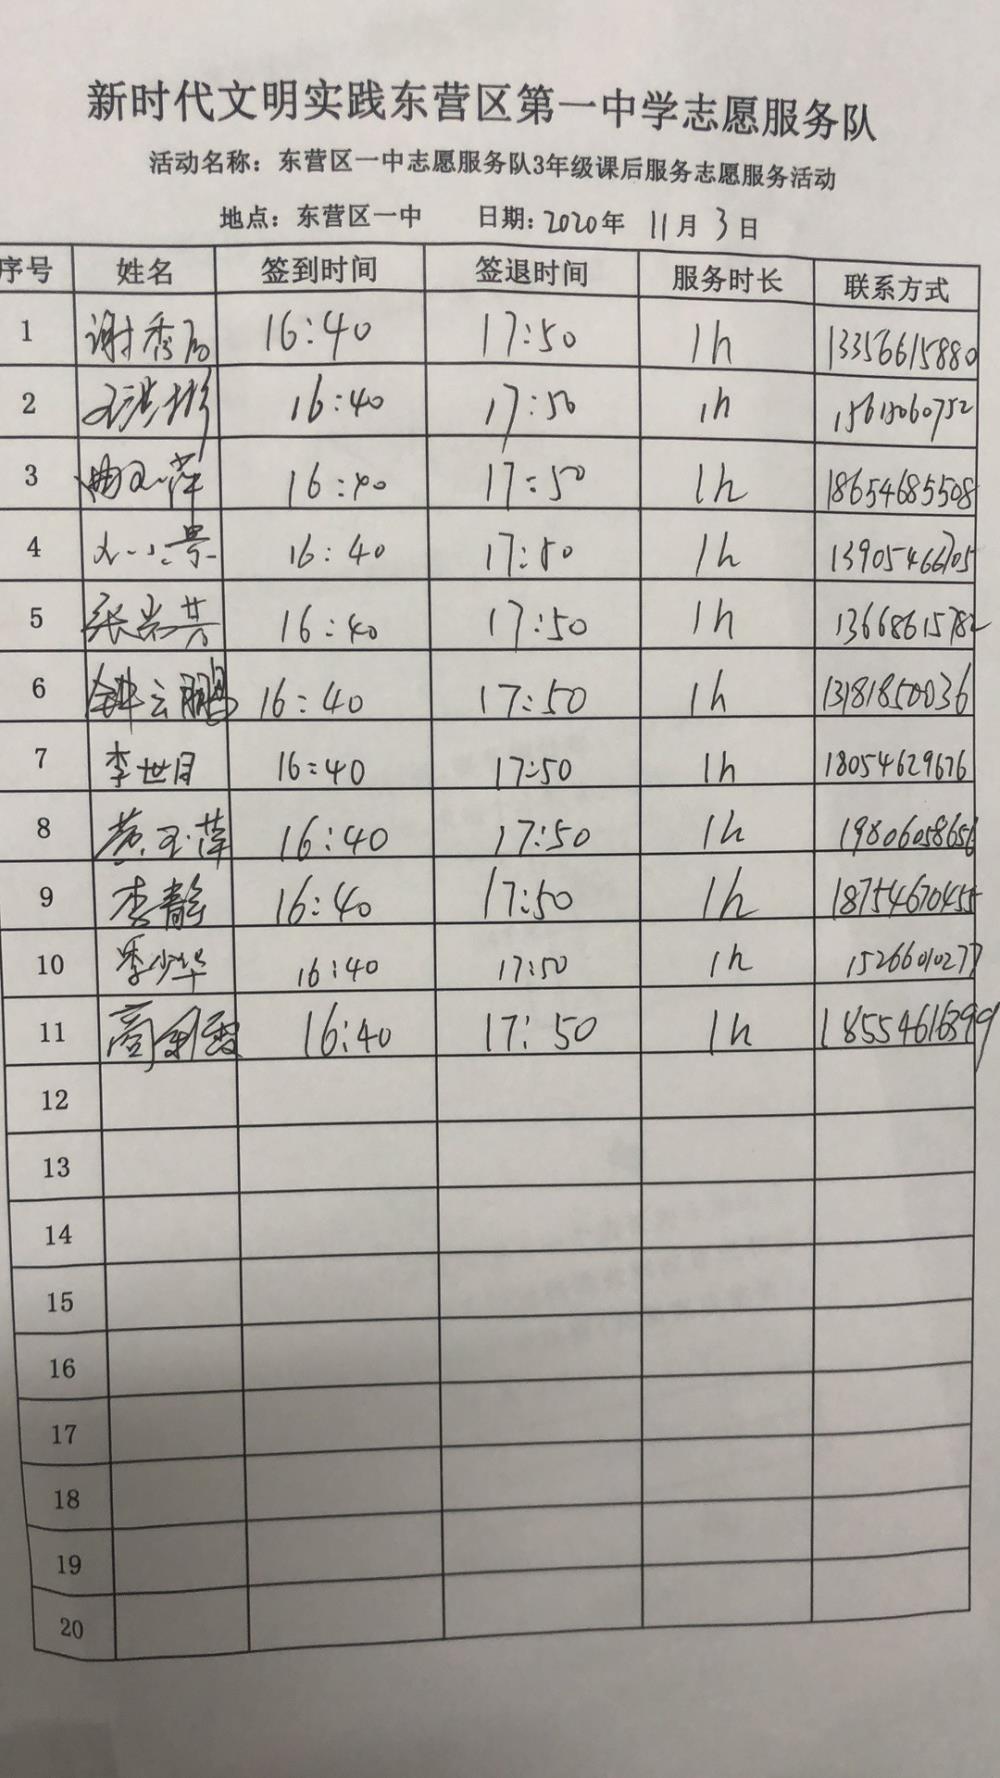 新时代文明实践东营区第一中学志愿服务队
活动名称：东营区一中志愿服务队3年级课后服务志愿服务活动
地点：东营区一中 日期：2020年 11月 3日
序号 姓名 签到时间 签退时间 服务时长 联系方式
1 谢秀 16:40 17:50 1h 13356615880
2 16:40 17:50 1h 15615060752
3 曲 萍 16:40 17:50 1h 18654685508
4 16:40 17:50 1h 13905466705
5 张 芳 16:40 17:50 1h 13668615782
6 钟云鹏 16:40 17:50 1h 13181850036
7 李世月 16:40 17:50 1h 18054629676
8 黄玉萍 16:40 17:50 1h 19806058656
9 李静 16:40 17:50 1h 18754670455
10 季少华 16:40 17:50 1h 15266010277
11 商 霞 16:40 17:50 1h 18554616399
12
13
14
15
16
17
18
19
20